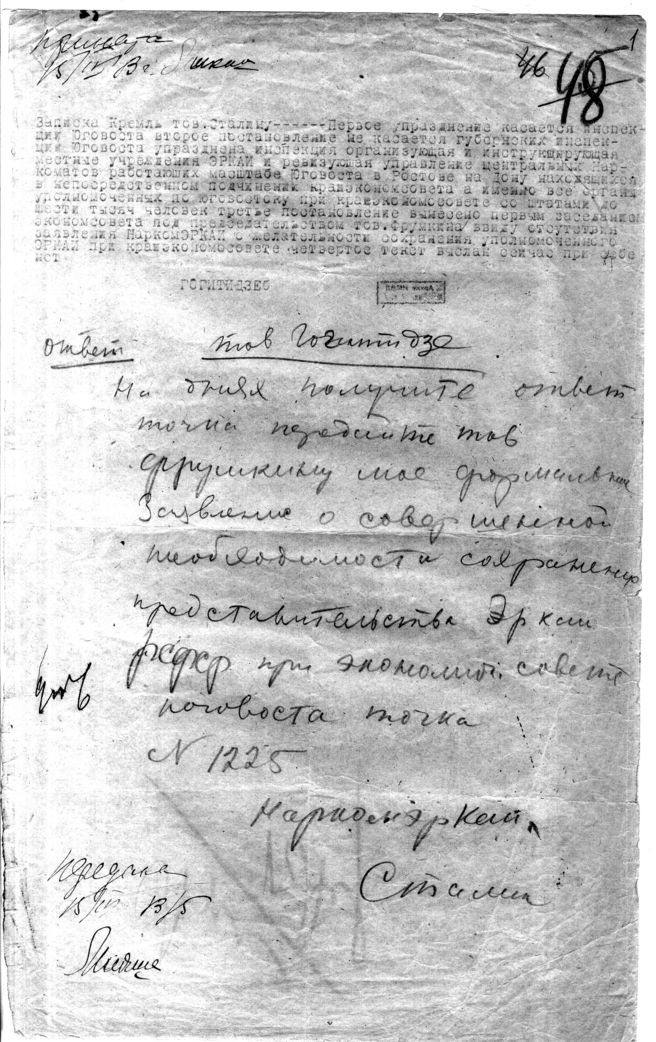 1
46
48
Принята
15/IV 13 ч.
Записка Кремль тов.Сталину------Первое упразднение касается инспек-
ции Юговоста второе постановление не касается губернских инспек-
ций Юговоста упразднена инспекция организующая и инструктирующая
местные учреждения ЭРКАИ и ревизующая управление центральных Нар-
коматов работающих масштабе Юговоста в Ростове на Дону находящихся
в непосредственном подчинении крайэкономсовета а именно все органы
уполномоченных по юговостоку при крайэкономосовете со штатами до
шести тысяч человек третье постановление вынесено первым заседанием
экономсовета под председательством тов.Фрумкина ввиду отсутствия
заявления НаркомЭРКАИ о желательности сохранения уполномоченного
ЭРКАИ при крайэкономосовете четвертое текст выслан сейчас при себе
нет
ГОГИТИДЗЕ
ответ тов Гогитидзе
На днях получите ответ
точка передайте тов
Фрумкину мое формальное
Заявление о совершенной
необходимости сохранения
представительства Эркаи
РСФСР при экономич. совете
юговоста точка
N 1225
НаркомэрКаи
Сталин
Передана
15/IV 13/5